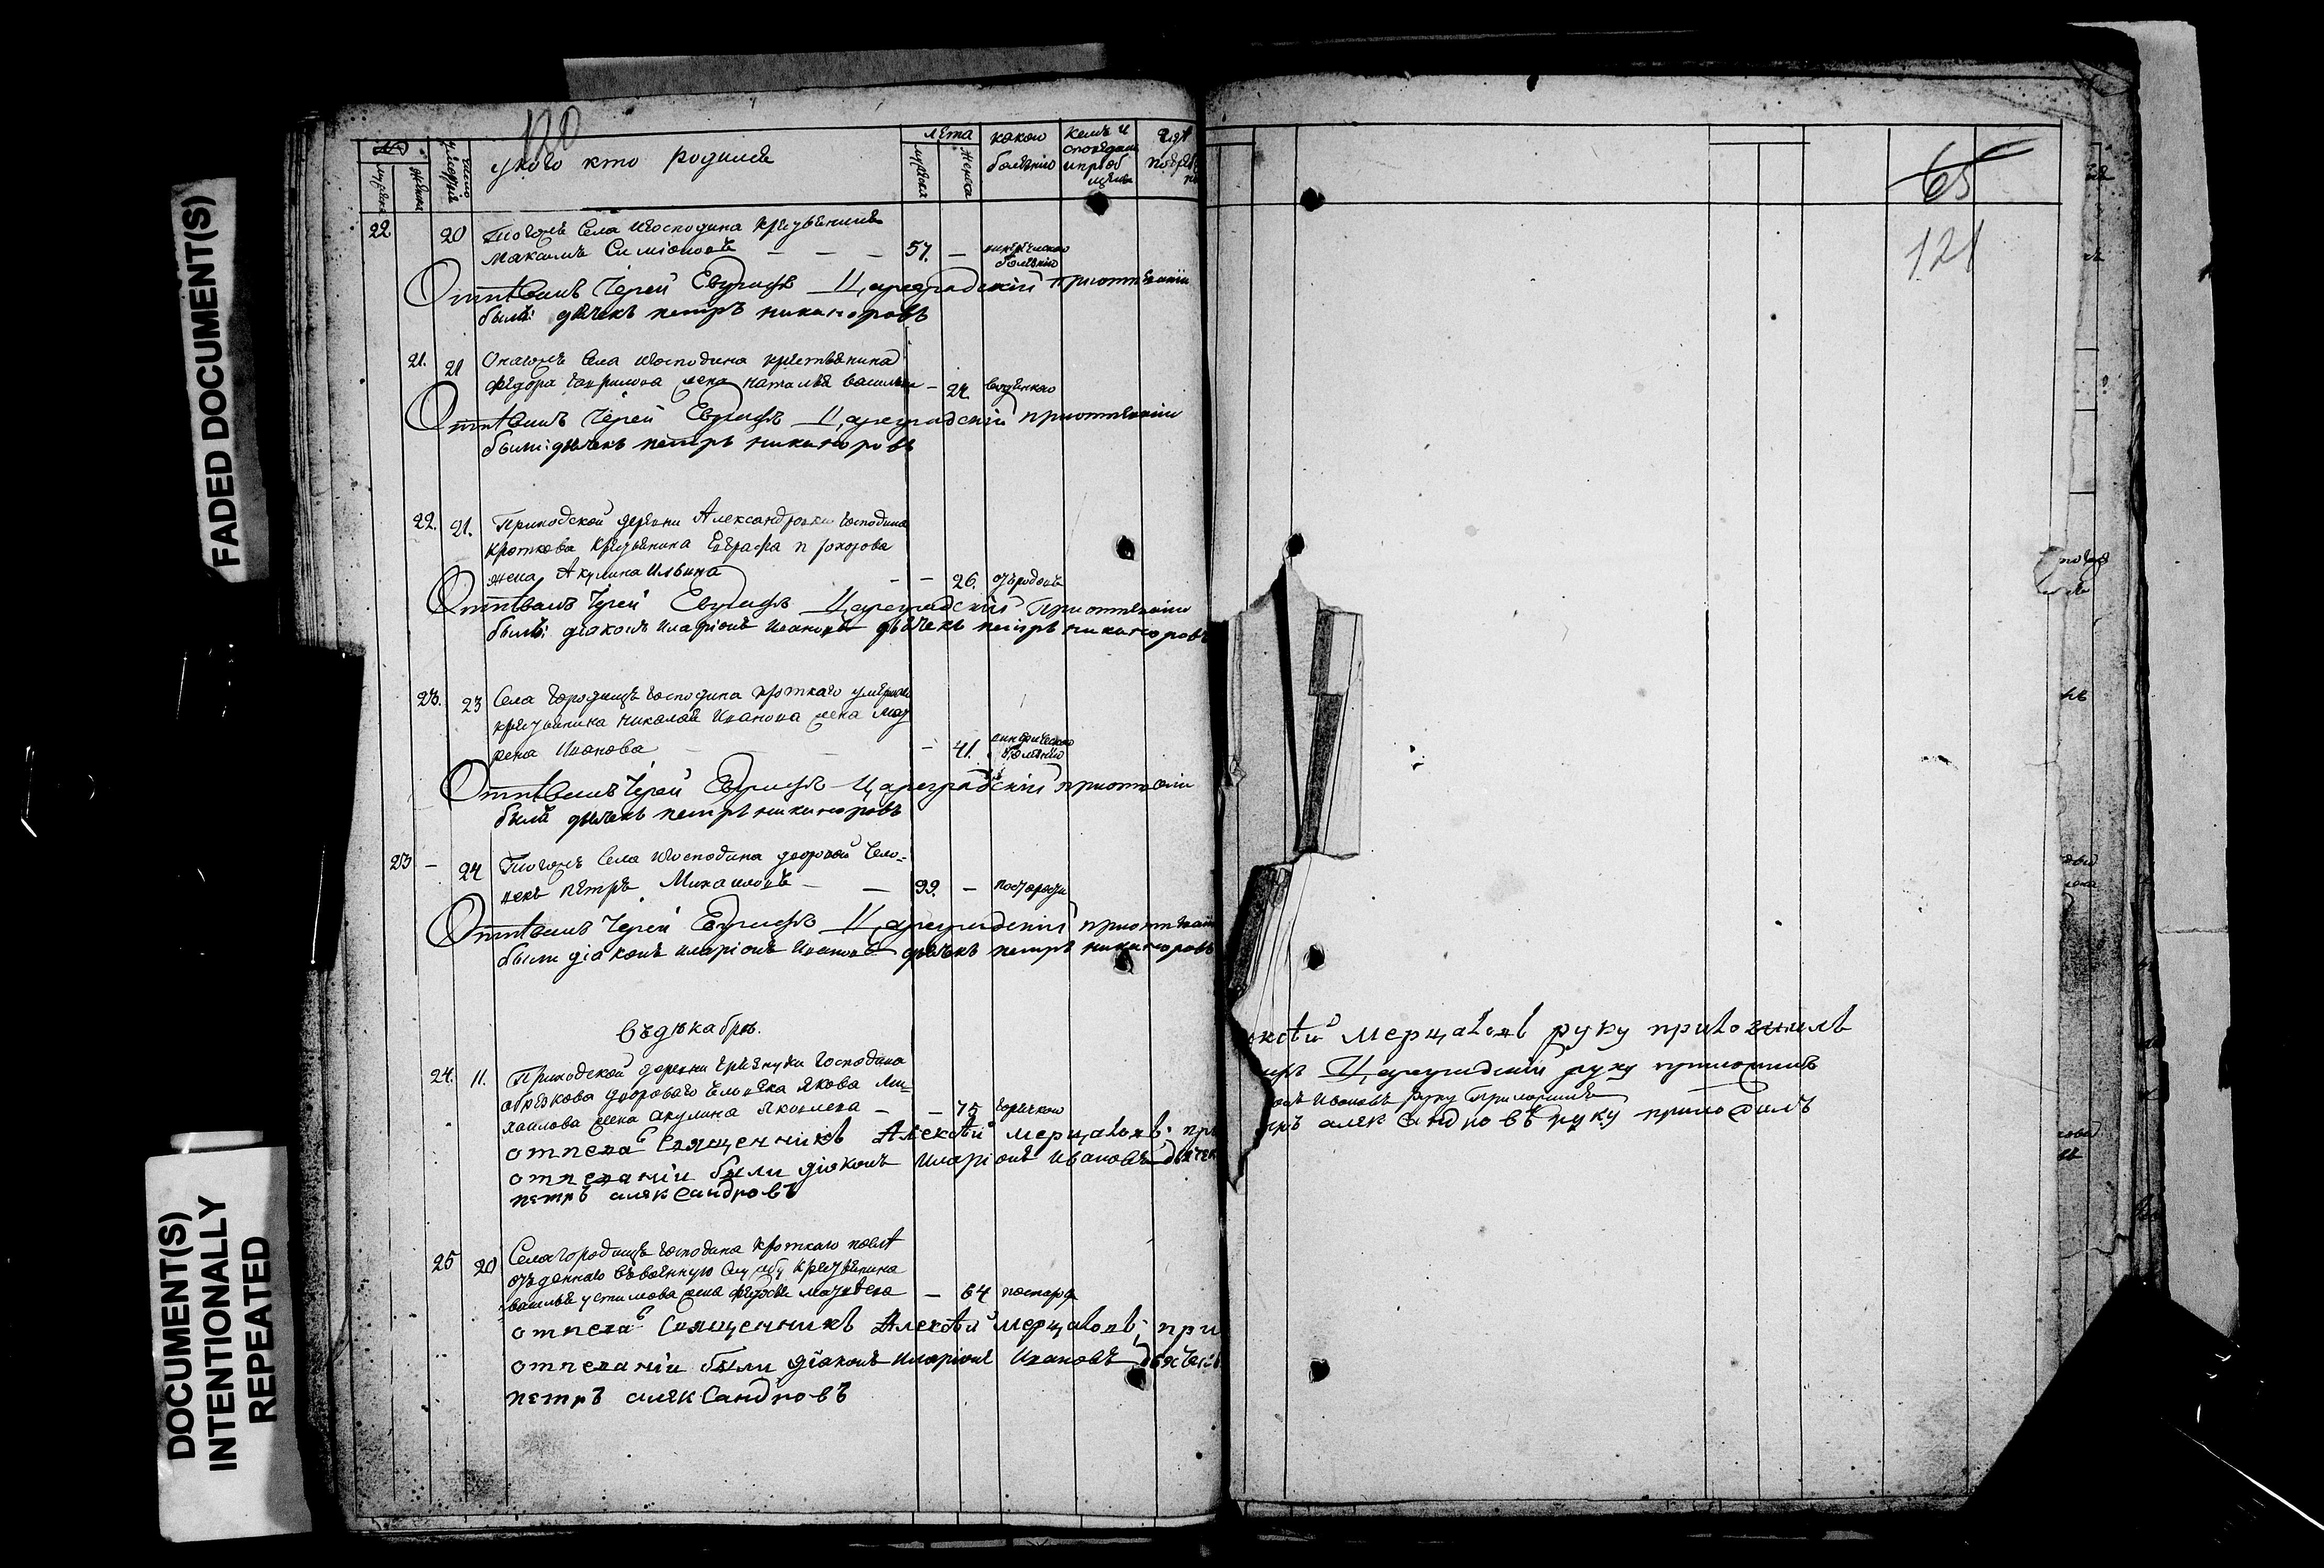 FADED DOCUMENT(S)
DOCUMENT(S)
INTENTIONALLY
REPEATED
120
№
мужска
женска
число
умертвія
укого кто родился
лѣта
мужska
женска
какою
болѣзнію
кемъ и
исповеданы
ипріоб
щены
22
20
Тогожъ Села иГосподина крестьянинъ
Максимъ Симіоновъ — — — 57. —
болѣзнію
Отпѣвалъ Іерей Евграфъ Цареградскій приотпеваніи
былъ: дьячекъ петръ никаноровъ
21. 21
Онагожъ Села иГосподина крестьянина
Федора Гаврилова жена наталья васильва — 24 водянкою
Отпѣвалъ Іерей Евграфъ Цареградскій приотпеваніи
были: дьячекъ петръ никаноровъ
22. 21.
Приходской деревни Александровки Господина
Кроткова Крестьянина Евграфа прохорова
жена Акулина Ильина — — 26.
Отпѣвалъ Іерей Евграфъ Цареградскій Приотпеваніи
былъ: діаконъ иларіонъ ивановъ дьячекъ петръ никаноровъ
23. 23
Села Городищъ Господина кроткаго умершаго
крестьянина николая Иванова жена мав
рена Иванова — 41.
болѣзнію
Отпѣвалъ Іерей Евграфъ Цареградскій приотпеваніи
былъ дьячекъ петръ никаноровъ
23 — 24
Тогожъ Села иГосподина дворовой чело-
векъ петръ Михаиловъ — — 99. —
Отпѣвалъ Іерей Евграфъ Цареградскій приотпеваніи
были діаконъ иларіонъ Ивановъ дьячекъ петръ никаноровъ
въдекабрѣ.
24. 11.
Приходской деревни Грязнухи Господина
дворового человека Якова Ми-
хаилова жена акулина Яковлева — — 75 горячкою
отпева Священникъ Алексѣй мерцаловъ; при
отпеваніи были діаконъ Иларіонъ Ивановъ дьячек
петръ александровъ
25 20
Села городищъ Господина Кроткаго
ввоенную Службу Крестьянина
василья устимова жена Федосья матвеева — 64 постарос
отпева Священникъ Алексѣй мерцаловъ; при
отпеваніи были діаконъ Иларіонъ Ивановъ дьячекъ
петръ александровъ
65
121
ексѣй мерцаловъ руку приложилъ
Цареградскій руку приложилъ
Ивановъ руку Приложилъ
тръ александровъ руку приложилъ